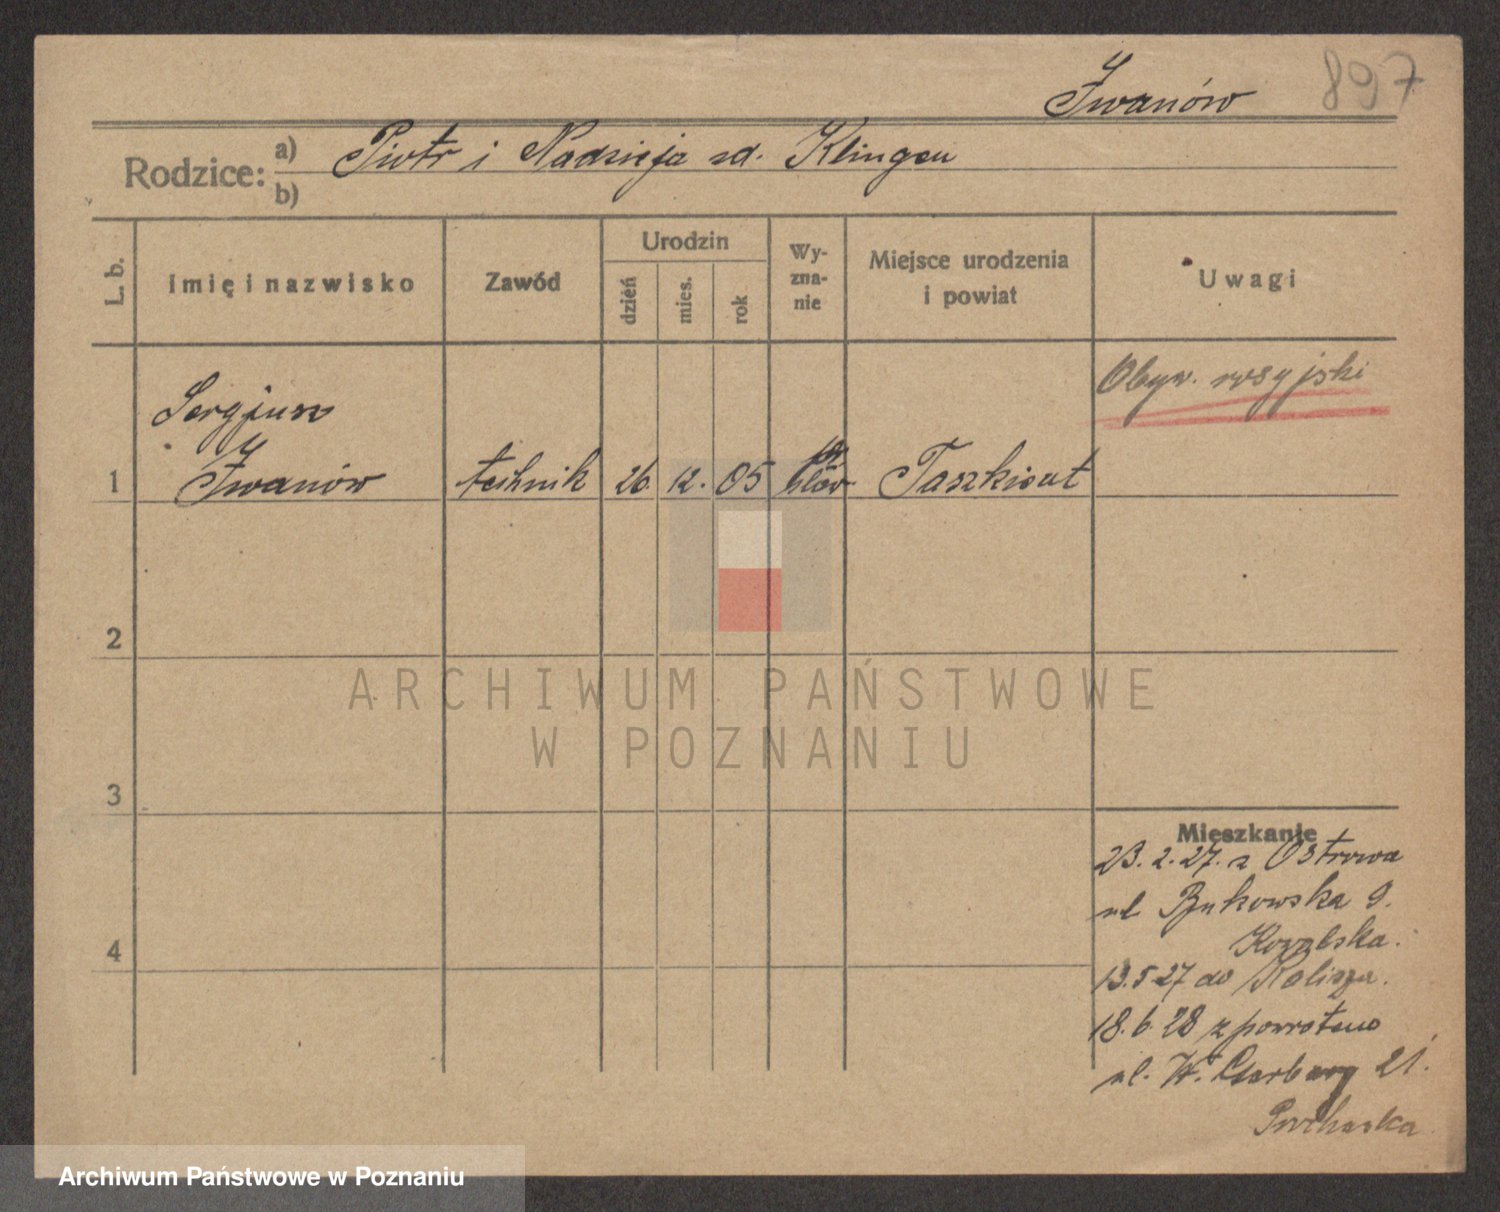 Iwanów 897
Rodzice: a) Piotr i Nadzieja zd. Klingen
b)
L. b.
Imię i nazwisko
Zawód
Urodzin
dzień
mies.
rok
Wy-
zna-
nie
Miejsce urodzenia
i powiat
Uwagi
Obyw. rosyjski
Sergjusz
1 Iwanów technik 26. 12. 05 Taszkient
2
ARCHIWUM PAŃSTWOWE
W POZNANIU
3
Mieszkanie
23. 2. 27. z Ostrowa
ul Bukowska 9.
4
13.5 27 do Kalisza.
18. 6. 28 z powrotem
ul. W. Garbary 21.
Archiwum Państwowe w Poznaniu